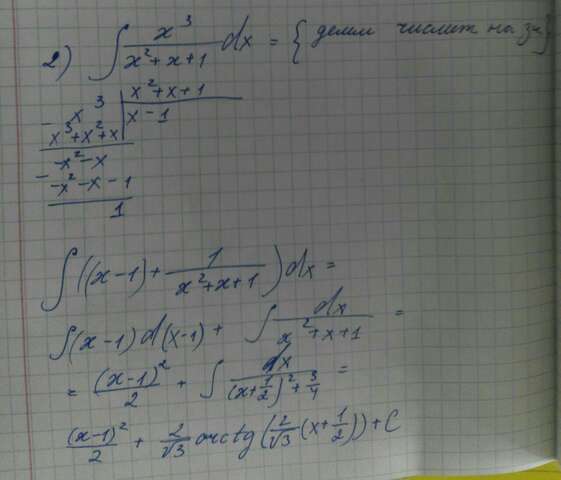 2) ∫ x³/(x²+x+1) dx = {делим числит на зн}
x³ | x²+x+1
- x³+x²+x | x-1
-x²-x
- -x²-x-1
1
∫((x-1) + 1/(x²+x+1)) dx =
∫(x-1)d(x-1) + ∫ dx/(x²+x+1) =
= (x-1)²/2 + ∫ dx/((x+1/2)²+3/4) =
(x-1)²/2 + 2/√3 arctg(2/√3(x+1/2)) + C